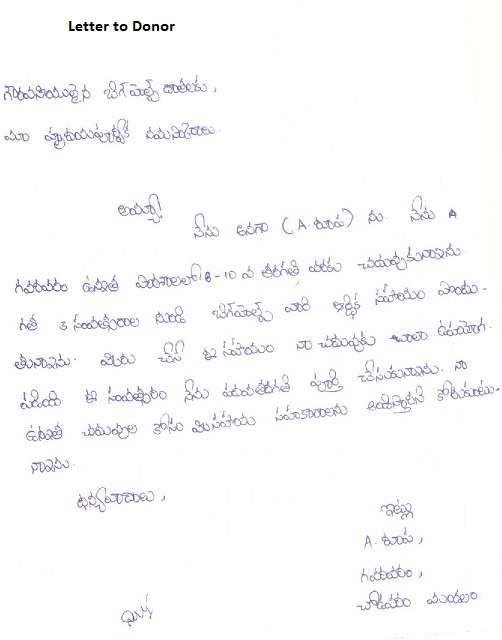 Letter to Donor
గౌరవనియులైన బిగ్ హెల్ప్ దాతలకు,
మా హృదయపూర్వక నమస్కారాలు.
అయ్యా!
నేను అనగా (A. రూప) ను. నేను
గవరవరం ఉన్నత పాఠశాలలో 8-10 వ తరగతి వరకు చదువుకున్నాను.
గత 3 సంవత్సరాల నుండి బిగ్ హెల్ప్ వారి ఆర్థిక సహాయం పొందు-
తున్నాను. మీరు చేసే ఈ సహాయం నా చదువుకు చాలా ఉపయోగ-
పడింది ఈ సంవత్సరం నేను పదవతరగతి పూర్తి చేసుకున్నాను. నా
ఉన్నత చదువుల కోసం మీ సహాయ సహకారాలను అందిస్తారని కోరుకుంటు-
న్నాను.
ధన్యవాదాలు,
ఇట్లు
A. రూప,
గవరవరం,
చోడవరం మండలం.